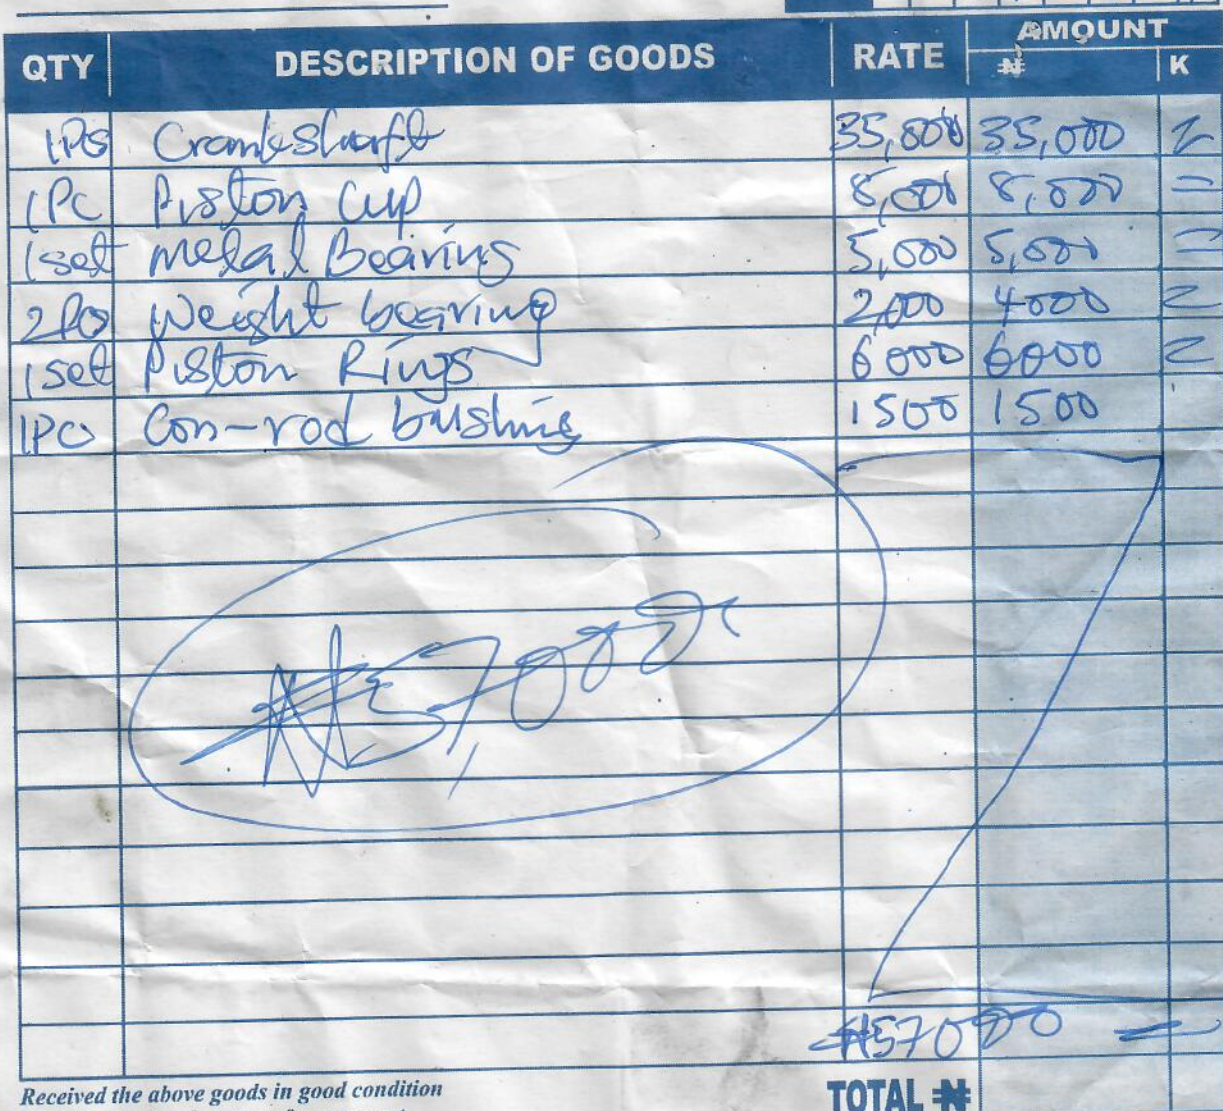 QTY DESCRIPTION OF GOODS RATE AMOUNT
₦ K
1Pcs Crankshaft 35,000 35,000 =
1Pc Piston Cup 8,000 8,000 =
1set metal Bearing 5,000 5,000 =
2Pcs Weight bearing 2,000 4000 =
1set Piston Rings 6000 6000 =
1PC Con-rod bushing 1500 1500
₦57,000=
₦57000 =
Received the above goods in good condition
TOTAL ₦